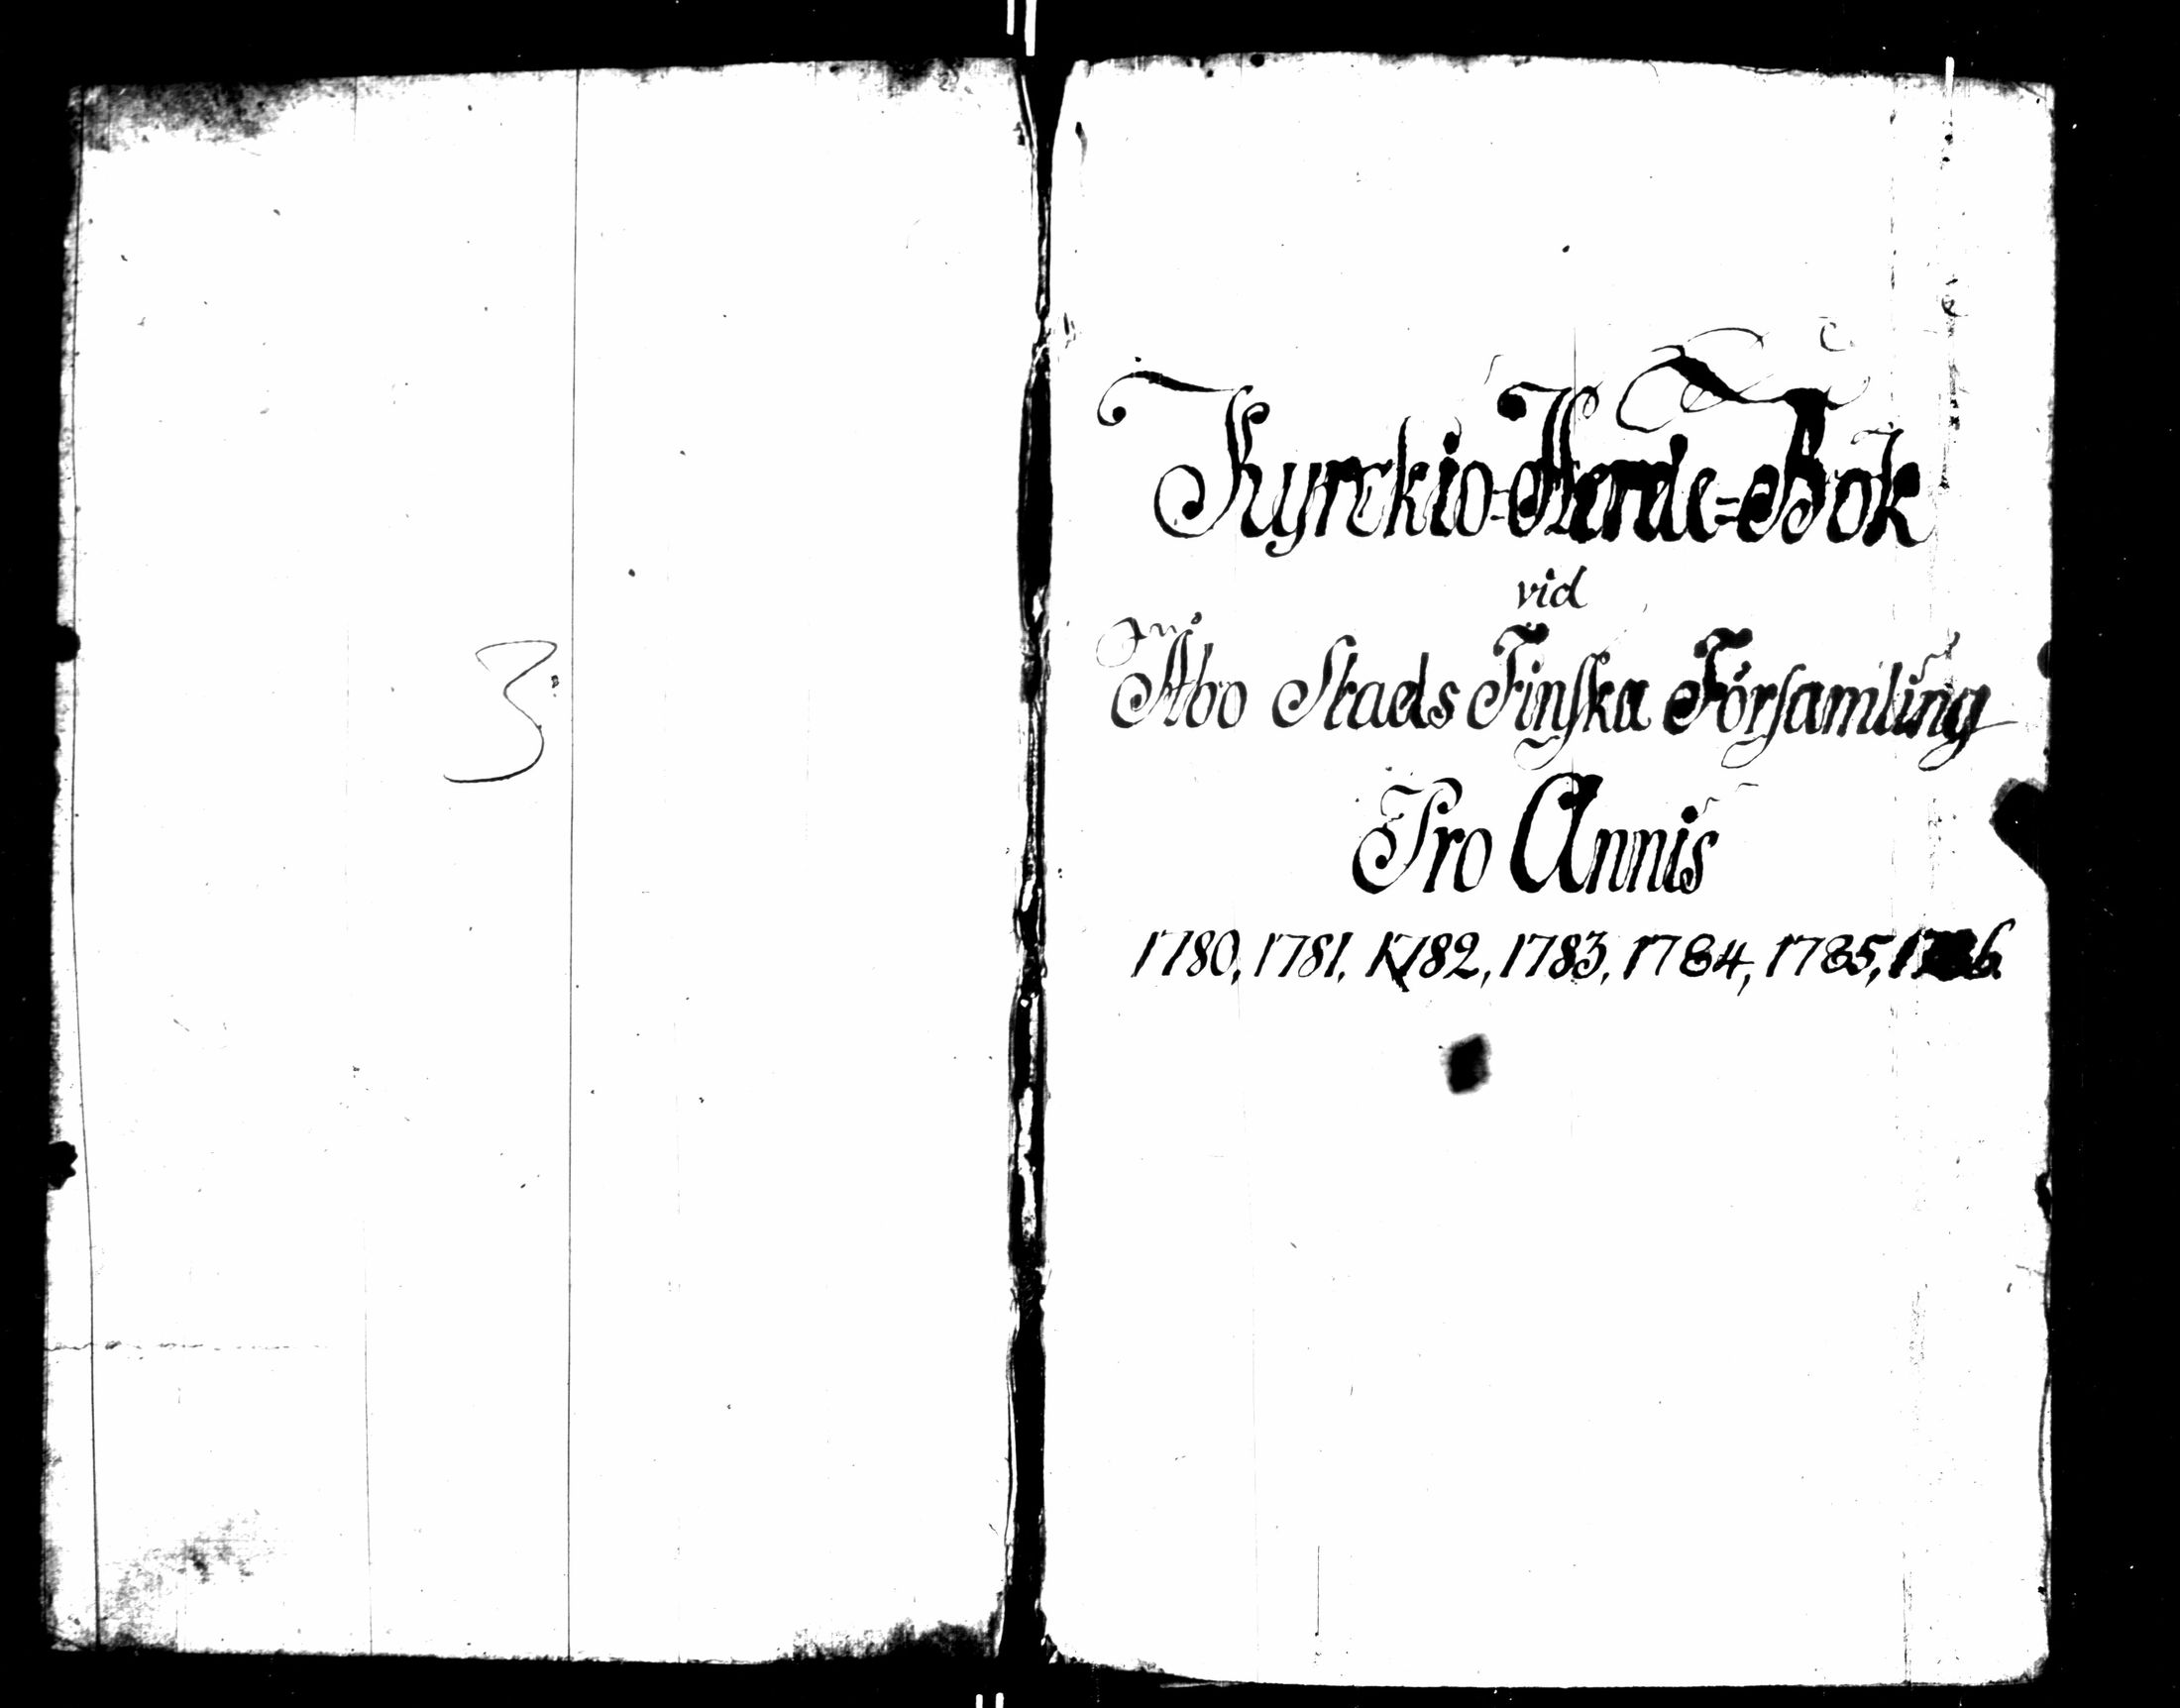 3
Kyrckio=Herde=Bok
vid
Åbo Stads Finska Församling
Pro Annis
1780, 1781, 1782, 1783, 1784, 1785, 1786.